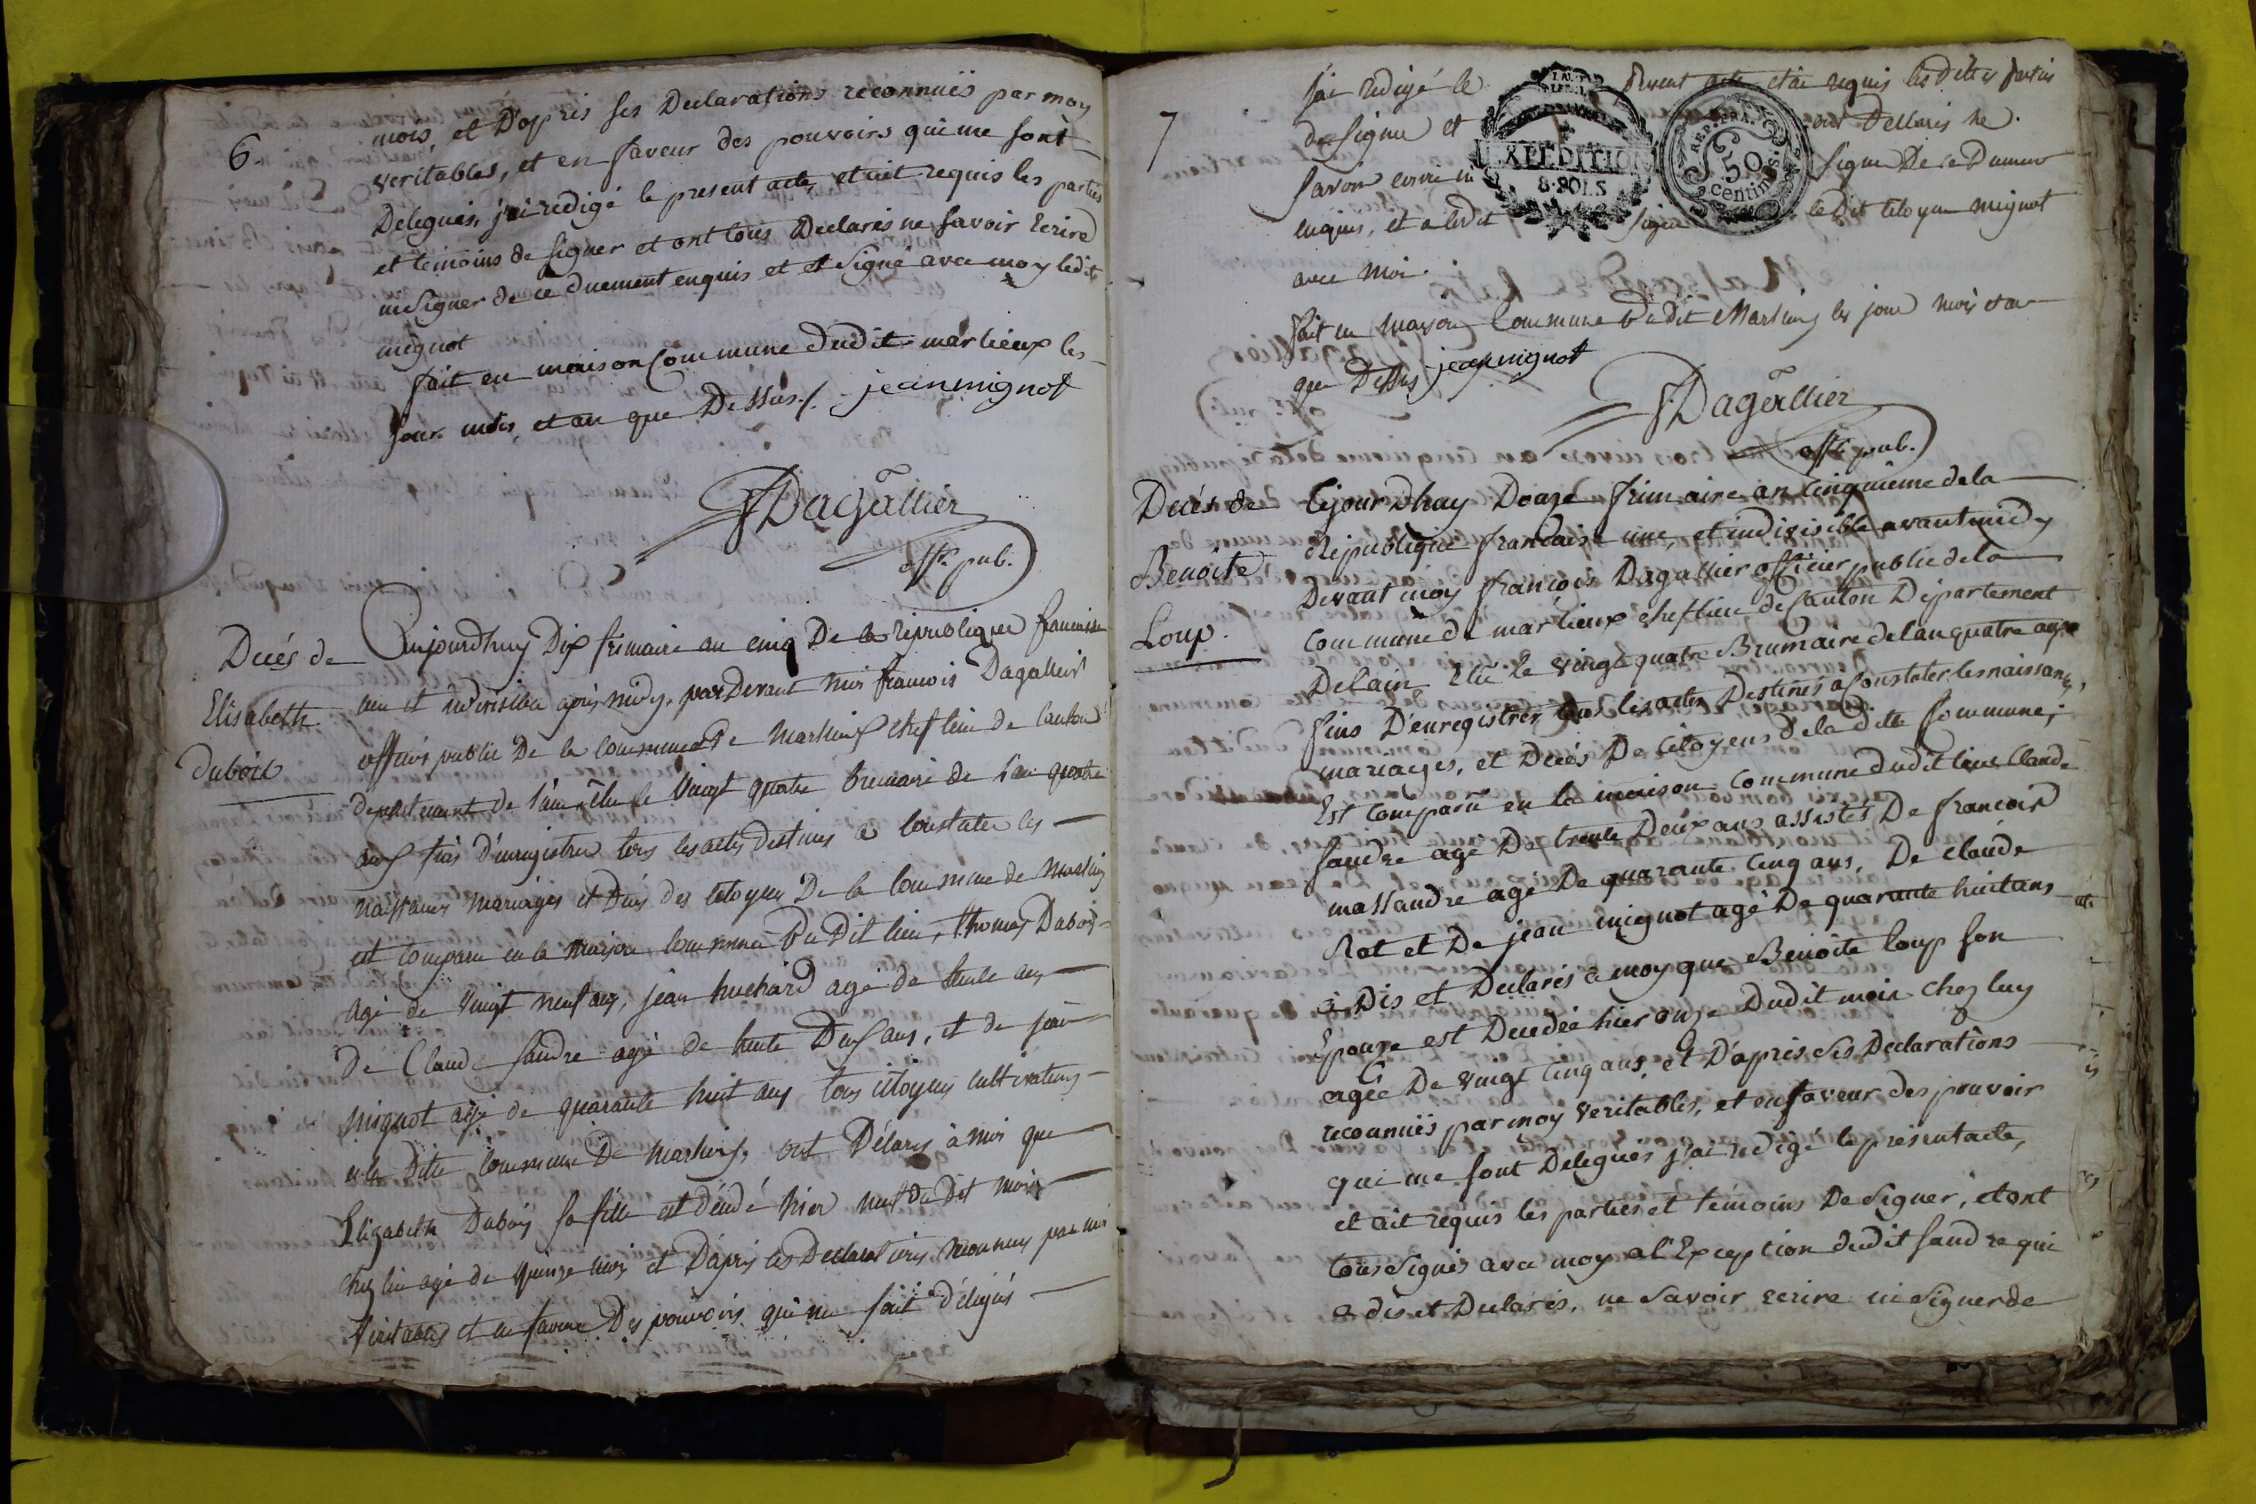 6
mois, et D'après ses Declarations reconnuës par moy
veritables, et en faveur des pouvoirs qui me sont
Delegués, j'ai redigé le present acte, et ait requis les parties
et temoins de signer et ont tous Declarés ne savoir Ecrire
ni signer de ce duement enquis et et signé avec moy ledit
mignot
fait en maison Commune dudit marlieux les
jour mois, et an que Dessus /. jean mignot
FDagallier
offr. pub.
Decés de
Elisabeth
dubois
Aujourdhuy Dix frimaire an cinq De la république francaise
une et indivisible après midy, par Devant moi francois Dagallier
officier public De la commune de Marlieux chef lieu de canton
departement de l'ain, élu le Vingt quatre brumaire de l'an quatre
aux fins d'enregistrer tous les actes destinés a constater les
naissances mariages et Décés des citoyens De la commune de Marlieux
est comparu en la maison commune Du Dit lieu, thomas Dubois
agé de vingt neuf ans, jean huchard agé de trente ans
De Claude fandre agé de trente Deux ans, et de jean
mignot agé de quarante huit ans tous citoyens cultivateurs
en la Dite commune De Marlieux, ont Déclarés à moi que
Elizabeth Dubois sa fille est décédé hier neuf du dit mois
chez lui agé de quinze mois et D'après ses Declarations reconnues par moi
Veritables et en faveur Des pouvoirs qui me sont délégués
7
j'ai redigé le present acte et ai requis les dites parties
de signer et ont Declarés ne
savoir ecrire ni signer De ce Dument
enquis, et a ledit signé le Dit citoyen mignot
avec moi.
EXPEDITION
8 SOLS
REP. FRA.
50
centimes
fait en maison Commune du dit Marlieux les jour mois et an
que Dessus jean mignot
FDagallier
offr. pub.
Decés de
Benoite
Loup.
Cejourdhuy Douze frimaire an cinquième de la
République francaise une, et indivisible avant midy
Devant moy francois Dagallier officier public de la
Commune de marlieux chef lieu de canton Departement
De l'ain Elu le vingt quatre Brumaire de l'an quatre aux
fins D'enregistrer tous les actes Destinés a constater les naissances,
mariages, et Decés De citoyens de la ditte commune;
Est comparu en la maison commune dudit lieu Claude
fandre agé De trente Deux ans assistés De francois
massandre agé De quarante cinq ans, De claude
Rot et De jean mignot agé De quarante huit ans
a Dis et Declarés a moy que Benoite loup son
Epouze est Decedée hier onze Dudit mois chez luy
agée De vingt cinq ans, et D'après ses Declarations
reconnuës par moy veritables, et en faveur des pouvoir
qui me sont Delegués j'ai redigé le présent acte,
et ait requis les parties et temoins De signer, et ont
tous signés avec moy a l'Exception dudit fandre qui
a dis et Declarés, ne savoir ecrire ni signer de